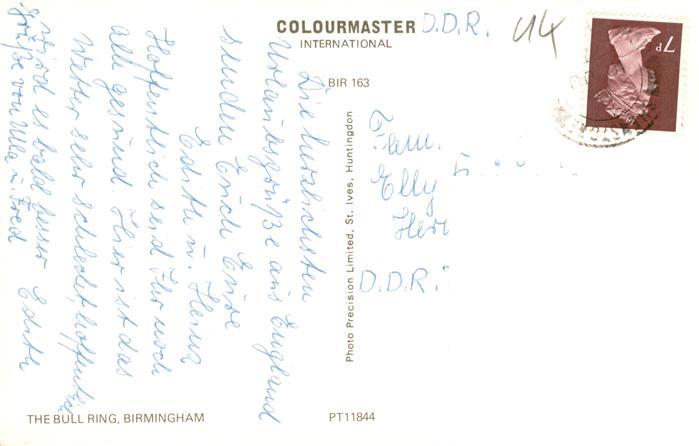 COLOURMASTER
INTERNATIONAL
BIR 163
D.D.R.
U4
7P
Fam.
Elly
Her
D.D.R.
Die herzlichsten
Urlaubsgrüße aus England
senden Euch Eure
Edith u. Heinz
Hoffentlich seid Ihr noch
all gesund. Hier ist das
Wetter sehr schlecht, hoffentlich
wird es bald besser Edith
Grüße von Ulla u. Fred
Photo Precision Limited, St. Ives, Huntingdon
THE BULL RING, BIRMINGHAM
PT11844